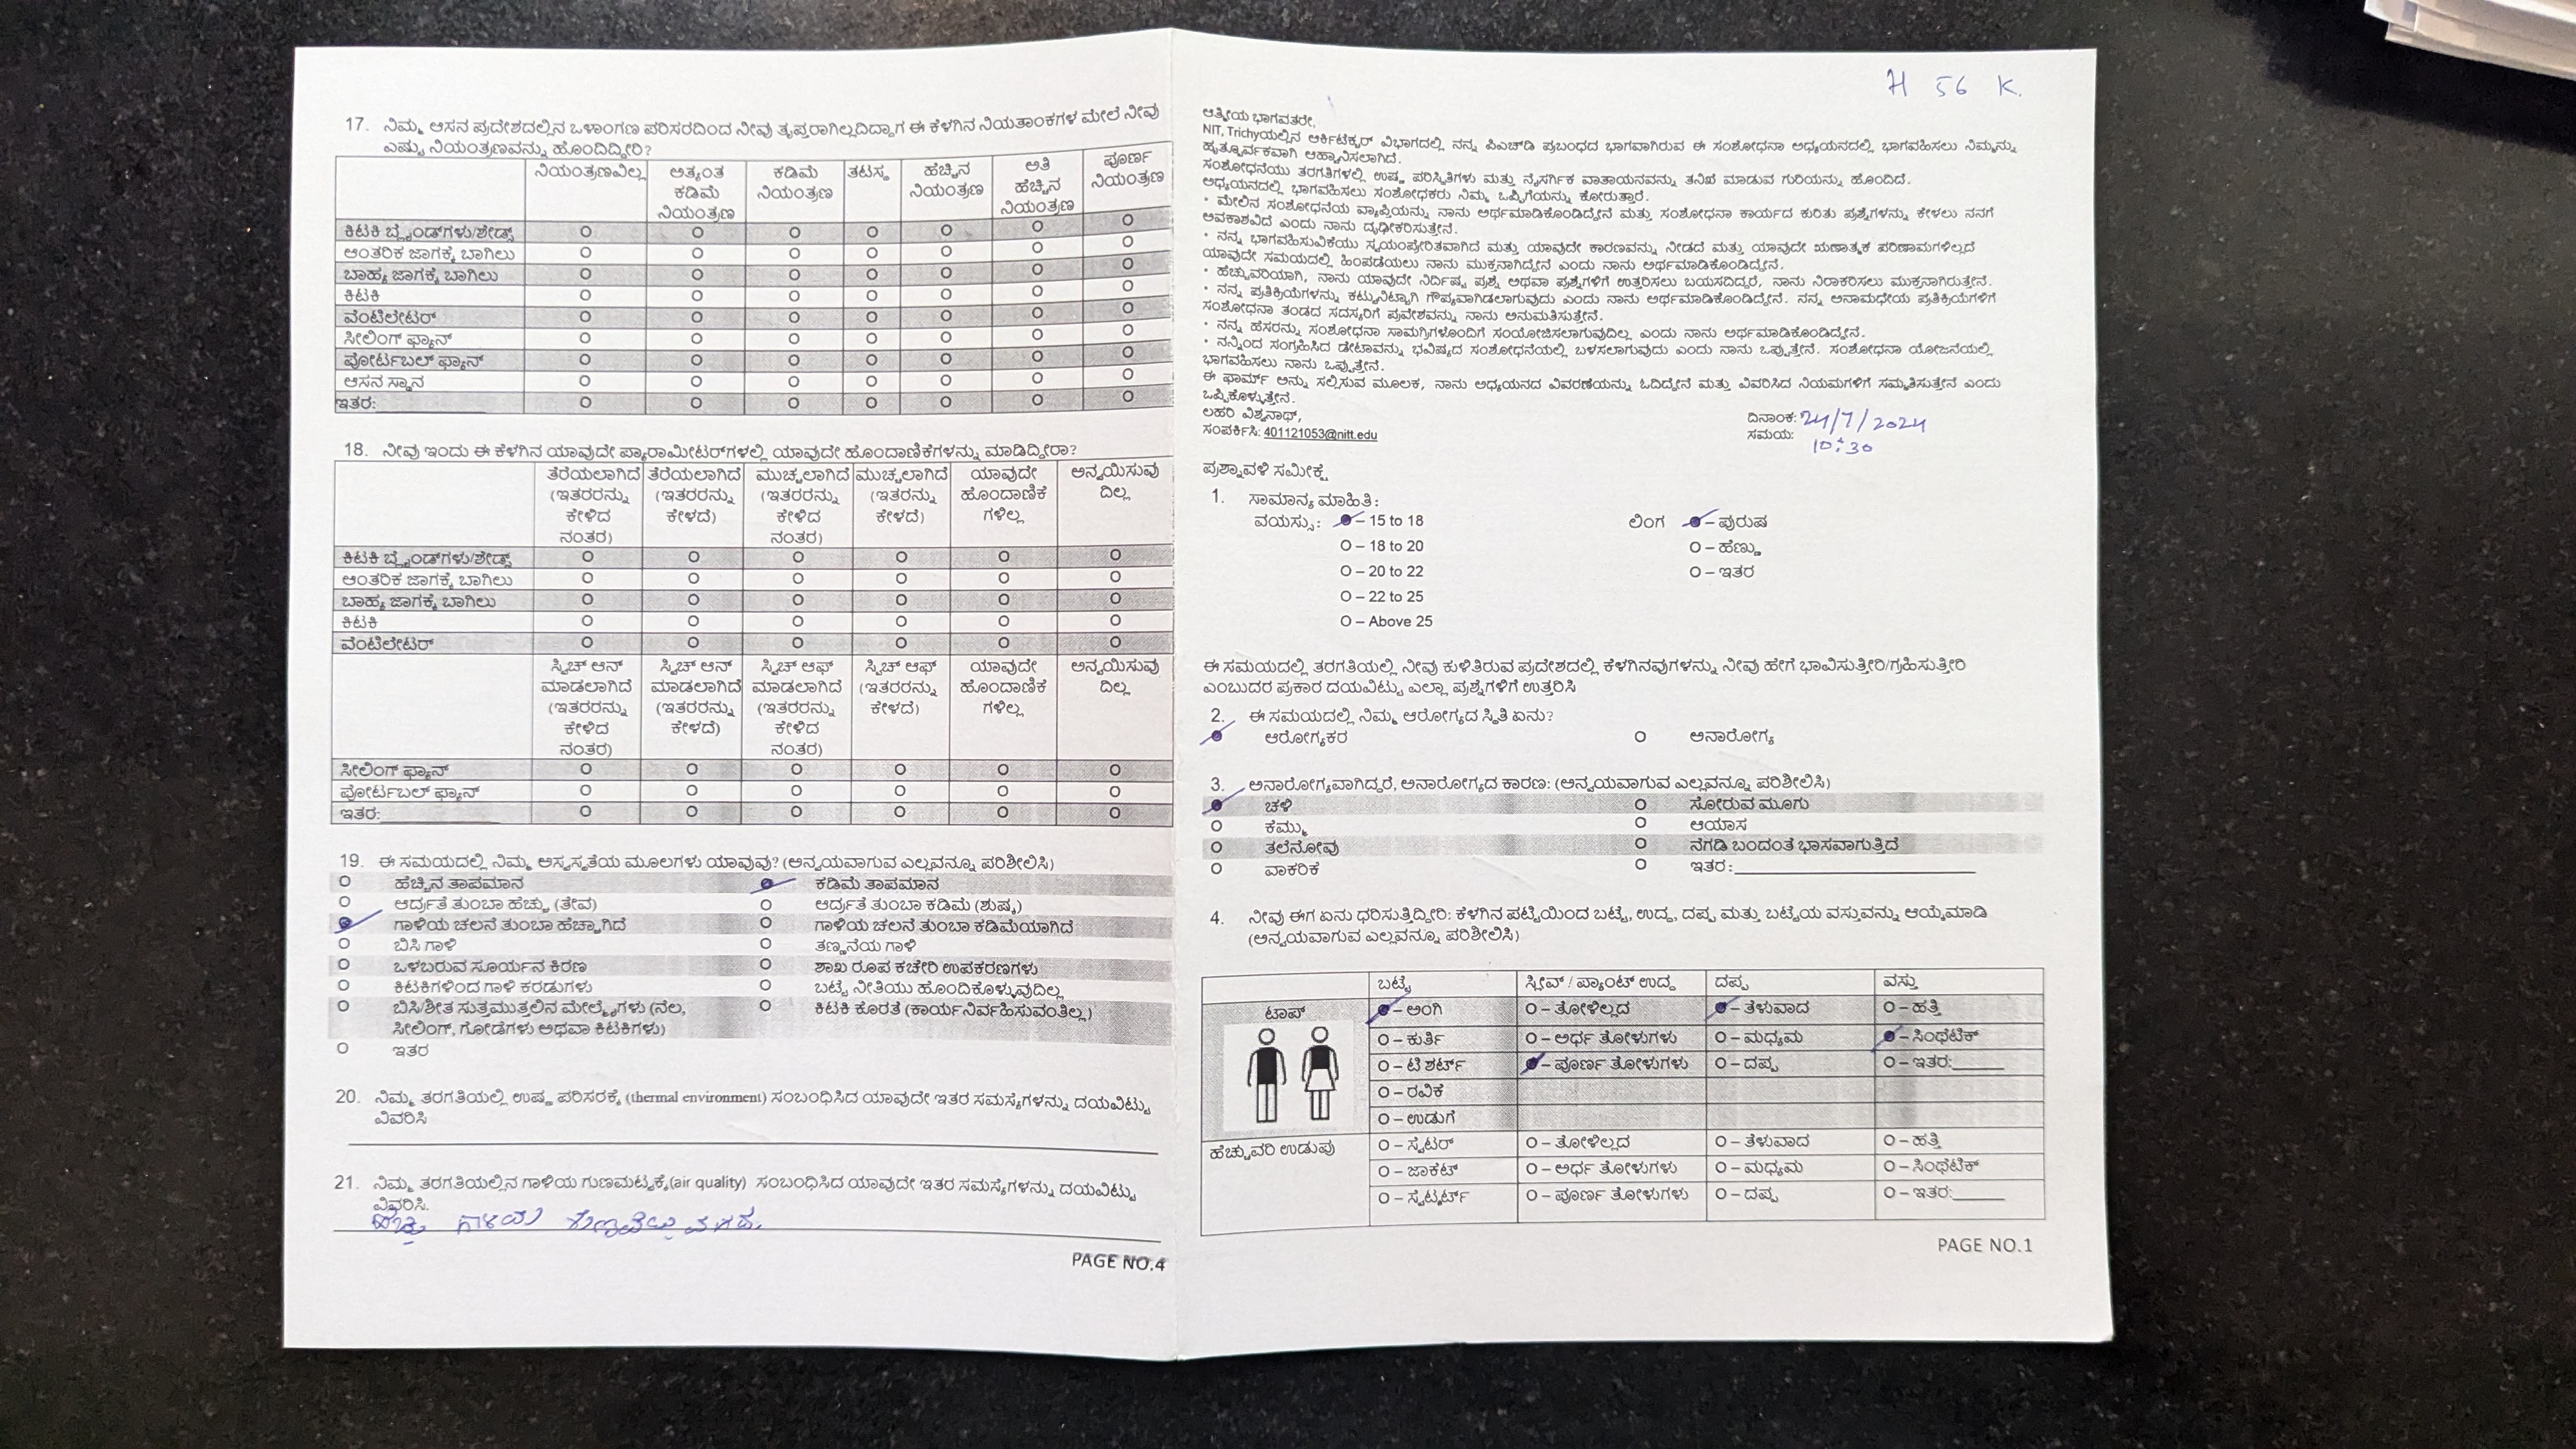 17. ನಿಮ್ಮ ಆಸನ ಪ್ರದೇಶದಲ್ಲಿನ ಒಳಾಂಗಣ ಪರಿಸರದಿಂದ ನೀವು ತೃಪ್ತರಾಗಿಲ್ಲದಿದ್ದಾಗ ಈ ಕೆಳಗಿನ ನಿಯತಾಂಕಗಳ ಮೇಲೆ ನೀವು
ಎಷ್ಟು ನಿಯಂತ್ರಣವನ್ನು ಹೊಂದಿದ್ದೀರಿ?
ನಿಯಂತ್ರಣವಿಲ್ಲ ಅತ್ಯಂತ ಕಡಿಮೆ ನಿಯಂತ್ರಣ ಕಡಿಮೆ ನಿಯಂತ್ರಣ ತಟಸ್ಥ ಹೆಚ್ಚಿನ ನಿಯಂತ್ರಣ ಅತಿ ಹೆಚ್ಚಿನ ನಿಯಂತ್ರಣ ಪೂರ್ಣ ನಿಯಂತ್ರಣ
ಕಿಟಕಿ ಬ್ಲೈಂಡ್‌ಗಳು/ಶೇಡ್ಸ್ O O O O O O O
ಆಂತರಿಕ ಜಾಗಕ್ಕೆ ಬಾಗಿಲು O O O O O O O
ಬಾಹ್ಯ ಜಾಗಕ್ಕೆ ಬಾಗಿಲು O O O O O O O
ಕಿಟಕಿ O O O O O O O
ವೆಂಟಿಲೇಟರ್ O O O O O O O
ಸೀಲಿಂಗ್ ಫ್ಯಾನ್ O O O O O O O
ಪೋರ್ಟಬಲ್ ಫ್ಯಾನ್ O O O O O O O
ಆಸನ ಸ್ಥಾನ O O O O O O O
ಇತರ: O O O O O O O
18. ನೀವು ಇಂದು ಈ ಕೆಳಗಿನ ಯಾವುದೇ ಪ್ಯಾರಾಮೀಟರ್‌ಗಳಲ್ಲಿ ಯಾವುದೇ ಹೊಂದಾಣಿಕೆಗಳನ್ನು ಮಾಡಿದ್ದೀರಾ?
ತೆರೆಯಲಾಗಿದೆ (ಇತರರನ್ನು ಕೇಳಿದ ನಂತರ) ತೆರೆಯಲಾಗಿದೆ (ಇತರರನ್ನು ಕೇಳದೆ) ಮುಚ್ಚಲಾಗಿದೆ (ಇತರರನ್ನು ಕೇಳಿದ ನಂತರ) ಮುಚ್ಚಲಾಗಿದೆ (ಇತರರನ್ನು ಕೇಳದೆ) ಯಾವುದೇ ಹೊಂದಾಣಿಕೆಗಳಿಲ್ಲ ಅನ್ವಯಿಸುವುದಿಲ್ಲ
ಕಿಟಕಿ ಬ್ಲೈಂಡ್‌ಗಳು/ಶೇಡ್ಸ್ O O O O O O
ಆಂತರಿಕ ಜಾಗಕ್ಕೆ ಬಾಗಿಲು O O O O O O
ಬಾಹ್ಯ ಜಾಗಕ್ಕೆ ಬಾಗಿಲು O O O O O O
ಕಿಟಕಿ O O O O O O
ವೆಂಟಿಲೇಟರ್ O O O O O O
ಸ್ವಿಚ್ ಆನ್ ಮಾಡಲಾಗಿದೆ (ಇತರರನ್ನು ಕೇಳಿದ ನಂತರ) ಸ್ವಿಚ್ ಆನ್ ಮಾಡಲಾಗಿದೆ (ಇತರರನ್ನು ಕೇಳದೆ) ಸ್ವಿಚ್ ಆಫ್ ಮಾಡಲಾಗಿದೆ (ಇತರರನ್ನು ಕೇಳಿದ ನಂತರ) ಸ್ವಿಚ್ ಆಫ್ (ಇತರರನ್ನು ಕೇಳದೆ) ಯಾವುದೇ ಹೊಂದಾಣಿಕೆಗಳಿಲ್ಲ ಅನ್ವಯಿಸುವುದಿಲ್ಲ
ಸೀಲಿಂಗ್ ಫ್ಯಾನ್ O O O O O O
ಪೋರ್ಟಬಲ್ ಫ್ಯಾನ್ O O O O O O
ಇತರ: O O O O O O
19. ಈ ಸಮಯದಲ್ಲಿ ನಿಮ್ಮ ಅಸ್ವಸ್ಥತೆಯ ಮೂಲಗಳು ಯಾವುವು? (ಅನ್ವಯವಾಗುವ ಎಲ್ಲವನ್ನೂ ಪರಿಶೀಲಿಸಿ)
O ಹೆಚ್ಚಿನ ತಾಪಮಾನ ಕಡಿಮೆ ತಾಪಮಾನ
O ಆರ್ದ್ರತೆ ತುಂಬಾ ಹೆಚ್ಚು (ತೇವ) O ಆರ್ದ್ರತೆ ತುಂಬಾ ಕಡಿಮೆ (ಶುಷ್ಕ)
ಗಾಳಿಯ ಚಲನೆ ತುಂಬಾ ಹೆಚ್ಚಾಗಿದೆ O ಗಾಳಿಯ ಚಲನೆ ತುಂಬಾ ಕಡಿಮೆಯಾಗಿದೆ
O ಬಿಸಿ ಗಾಳಿ O ತಣ್ಣನೆಯ ಗಾಳಿ
O ಒಳಬರುವ ಸೂರ್ಯನ ಕಿರಣ O ಶಾಖ ರೂಪ ಕಚೇರಿ ಉಪಕರಣಗಳು
O ಕಿಟಕಿಗಳಿಂದ ಗಾಳಿ ಕರಡುಗಳು O ಬಟ್ಟೆ ನೀತಿಯು ಹೊಂದಿಕೊಳ್ಳುವುದಿಲ್ಲ
O ಬಿಸಿ/ಶೀತ ಸುತ್ತಮುತ್ತಲಿನ ಮೇಲ್ಮೈಗಳು (ನೆಲ, O ಕಿಟಕಿ ಕೊರತೆ (ಕಾರ್ಯನಿರ್ವಹಿಸುವಂತಿಲ್ಲ)
ಸೀಲಿಂಗ್, ಗೋಡೆಗಳು ಅಥವಾ ಕಿಟಕಿಗಳು)
O ಇತರ
20. ನಿಮ್ಮ ತರಗತಿಯಲ್ಲಿ ಉಷ್ಣ ಪರಿಸರಕ್ಕೆ (thermal environment) ಸಂಬಂಧಿಸಿದ ಯಾವುದೇ ಇತರ ಸಮಸ್ಯೆಗಳನ್ನು ದಯವಿಟ್ಟು
ವಿವರಿಸಿ
21. ನಿಮ್ಮ ತರಗತಿಯಲ್ಲಿನ ಗಾಳಿಯ ಗುಣಮಟ್ಟಕ್ಕೆ(air quality) ಸಂಬಂಧಿಸಿದ ಯಾವುದೇ ಇತರ ಸಮಸ್ಯೆಗಳನ್ನು ದಯವಿಟ್ಟು
ವಿವರಿಸಿ.
PAGE NO.4
H 56 K.
ಆತ್ಮೀಯ ಭಾಗವತರೇ,
NIT, Trichyಯಲ್ಲಿನ ಆರ್ಕಿಟೆಕ್ಚರ್ ವಿಭಾಗದಲ್ಲಿ ನನ್ನ ಪಿಎಚ್‌ಡಿ ಪ್ರಬಂಧದ ಭಾಗವಾಗಿರುವ ಈ ಸಂಶೋಧನಾ ಅಧ್ಯಯನದಲ್ಲಿ ಭಾಗವಹಿಸಲು ನಿಮ್ಮನ್ನು
ಹೃತ್ಪೂರ್ವಕವಾಗಿ ಆಹ್ವಾನಿಸಲಾಗಿದೆ.
ಸಂಶೋಧನೆಯು ತರಗತಿಗಳಲ್ಲಿ ಉಷ್ಣ ಪರಿಸ್ಥಿತಿಗಳು ಮತ್ತು ನೈಸರ್ಗಿಕ ವಾತಾಯನವನ್ನು ತನಿಖೆ ಮಾಡುವ ಗುರಿಯನ್ನು ಹೊಂದಿದೆ.
ಅಧ್ಯಯನದಲ್ಲಿ ಭಾಗವಹಿಸಲು ಸಂಶೋಧಕರು ನಿಮ್ಮ ಒಪ್ಪಿಗೆಯನ್ನು ಕೋರುತ್ತಾರೆ.
• ಮೇಲಿನ ಸಂಶೋಧನೆಯ ವ್ಯಾಪ್ತಿಯನ್ನು ನಾನು ಅರ್ಥಮಾಡಿಕೊಂಡಿದ್ದೇನೆ ಮತ್ತು ಸಂಶೋಧನಾ ಕಾರ್ಯದ ಕುರಿತು ಪ್ರಶ್ನೆಗಳನ್ನು ಕೇಳಲು ನನಗೆ
ಅವಕಾಶವಿದೆ ಎಂದು ನಾನು ದೃಢೀಕರಿಸುತ್ತೇನೆ.
• ನನ್ನ ಭಾಗವಹಿಸುವಿಕೆಯು ಸ್ವಯಂಪ್ರೇರಿತವಾಗಿದೆ ಮತ್ತು ಯಾವುದೇ ಕಾರಣವನ್ನು ನೀಡದೆ ಮತ್ತು ಯಾವುದೇ ಋಣಾತ್ಮಕ ಪರಿಣಾಮಗಳಿಲ್ಲದೆ
ಯಾವುದೇ ಸಮಯದಲ್ಲಿ ಹಿಂಪಡೆಯಲು ನಾನು ಮುಕ್ತನಾಗಿದ್ದೇನೆ ಎಂದು ನಾನು ಅರ್ಥಮಾಡಿಕೊಂಡಿದ್ದೇನೆ.
• ಹೆಚ್ಚುವರಿಯಾಗಿ, ನಾನು ಯಾವುದೇ ನಿರ್ದಿಷ್ಟ ಪ್ರಶ್ನೆ ಅಥವಾ ಪ್ರಶ್ನೆಗಳಿಗೆ ಉತ್ತರಿಸಲು ಬಯಸದಿದ್ದರೆ, ನಾನು ನಿರಾಕರಿಸಲು ಮುಕ್ತನಾಗಿರುತ್ತೇನೆ.
• ನನ್ನ ಪ್ರತಿಕ್ರಿಯೆಗಳನ್ನು ಕಟ್ಟುನಿಟ್ಟಾಗಿ ಗೌಪ್ಯವಾಗಿಡಲಾಗುವುದು ಎಂದು ನಾನು ಅರ್ಥಮಾಡಿಕೊಂಡಿದ್ದೇನೆ. ನನ್ನ ಅನಾಮಧೇಯ ಪ್ರತಿಕ್ರಿಯೆಗಳಿಗೆ
ಸಂಶೋಧನಾ ತಂಡದ ಸದಸ್ಯರಿಗೆ ಪ್ರವೇಶವನ್ನು ನಾನು ಅನುಮತಿಸುತ್ತೇನೆ.
• ನನ್ನ ಹೆಸರನ್ನು ಸಂಶೋಧನಾ ಸಾಮಗ್ರಿಗಳೊಂದಿಗೆ ಸಂಯೋಜಿಸಲಾಗುವುದಿಲ್ಲ ಎಂದು ನಾನು ಅರ್ಥಮಾಡಿಕೊಂಡಿದ್ದೇನೆ.
• ನನ್ನಿಂದ ಸಂಗ್ರಹಿಸಿದ ಡೇಟಾವನ್ನು ಭವಿಷ್ಯದ ಸಂಶೋಧನೆಯಲ್ಲಿ ಬಳಸಲಾಗುವುದು ಎಂದು ನಾನು ಒಪ್ಪುತ್ತೇನೆ. ಸಂಶೋಧನಾ ಯೋಜನೆಯಲ್ಲಿ
ಭಾಗವಹಿಸಲು ನಾನು ಒಪ್ಪುತ್ತೇನೆ.
ಈ ಫಾರ್ಮ್ ಅನ್ನು ಸಲ್ಲಿಸುವ ಮೂಲಕ, ನಾನು ಅಧ್ಯಯನದ ವಿವರಣೆಯನ್ನು ಓದಿದ್ದೇನೆ ಮತ್ತು ವಿವರಿಸಿದ ನಿಯಮಗಳಿಗೆ ಸಮ್ಮತಿಸುತ್ತೇನೆ ಎಂದು
ಒಪ್ಪಿಕೊಳ್ಳುತ್ತೇನೆ.
ಲಹರಿ ವಿಶ್ವನಾಥ್, ದಿನಾಂಕ: 24/7/2024
ಸಂಪರ್ಕಿಸಿ: 401121053@nitt.edu ಸಮಯ: 10:30
ಪ್ರಶ್ನಾವಳಿ ಸಮೀಕ್ಷೆ
1. ಸಾಮಾನ್ಯ ಮಾಹಿತಿ:
ವಯಸ್ಸು: – 15 to 18 ಲಿಂಗ – ಪುರುಷ
O – 18 to 20 O – ಹೆಣ್ಣು
O – 20 to 22 O – ಇತರ
O – 22 to 25
O – Above 25
ಈ ಸಮಯದಲ್ಲಿ ತರಗತಿಯಲ್ಲಿ ನೀವು ಕುಳಿತಿರುವ ಪ್ರದೇಶದಲ್ಲಿ ಕೆಳಗಿನವುಗಳನ್ನು ನೀವು ಹೇಗೆ ಭಾವಿಸುತ್ತೀರಿ/ಗ್ರಹಿಸುತ್ತೀರಿ
ಎಂಬುದರ ಪ್ರಕಾರ ದಯವಿಟ್ಟು ಎಲ್ಲಾ ಪ್ರಶ್ನೆಗಳಿಗೆ ಉತ್ತರಿಸಿ
2. ಈ ಸಮಯದಲ್ಲಿ ನಿಮ್ಮ ಆರೋಗ್ಯದ ಸ್ಥಿತಿ ಏನು?
ಆರೋಗ್ಯಕರ O ಅನಾರೋಗ್ಯ
3. ಅನಾರೋಗ್ಯವಾಗಿದ್ದರೆ, ಅನಾರೋಗ್ಯದ ಕಾರಣ: (ಅನ್ವಯವಾಗುವ ಎಲ್ಲವನ್ನೂ ಪರಿಶೀಲಿಸಿ)
ಚಳಿ O ಸೋರುವ ಮೂಗು
O ಕೆಮ್ಮು O ಆಯಾಸ
O ತಲೆನೋವು O ನೆಗಡಿ ಬಂದಂತೆ ಭಾಸವಾಗುತ್ತಿದೆ
O ವಾಕರಿಕೆ O ಇತರ:
4. ನೀವು ಈಗ ಏನು ಧರಿಸುತ್ತಿದ್ದೀರಿ: ಕೆಳಗಿನ ಪಟ್ಟಿಯಿಂದ ಬಟ್ಟೆ, ಉದ್ದ, ದಪ್ಪ ಮತ್ತು ಬಟ್ಟೆಯ ವಸ್ತುವನ್ನು ಆಯ್ಕೆಮಾಡಿ
(ಅನ್ವಯವಾಗುವ ಎಲ್ಲವನ್ನೂ ಪರಿಶೀಲಿಸಿ)
ಬಟ್ಟೆ ಸ್ಲೀವ್ / ಪ್ಯಾಂಟ್ ಉದ್ದ ದಪ್ಪ ವಸ್ತು
ಟಾಪ್ – ಅಂಗಿ O – ತೋಳಿಲ್ಲದ – ತೆಳುವಾದ O – ಹತ್ತಿ
O – ಕುರ್ತಿ O – ಅರ್ಧ ತೋಳುಗಳು O – ಮಧ್ಯಮ – ಸಿಂಥೆಟಿಕ್
O – ಟಿ ಶರ್ಟ್ – ಪೂರ್ಣ ತೋಳುಗಳು O – ದಪ್ಪ O – ಇತರ:
O – ರವಿಕೆ
O – ಉಡುಗೆ
ಹೆಚ್ಚುವರಿ ಉಡುಪು O – ಸ್ವೆಟರ್ O – ತೋಳಿಲ್ಲದ O – ತೆಳುವಾದ O – ಹತ್ತಿ
O – ಜಾಕೆಟ್ O – ಅರ್ಧ ತೋಳುಗಳು O – ಮಧ್ಯಮ O – ಸಿಂಥೆಟಿಕ್
O – ಸ್ವೆಟ್ಶರ್ಟ್ O – ಪೂರ್ಣ ತೋಳುಗಳು O – ದಪ್ಪ O – ಇತರ:
PAGE NO.1